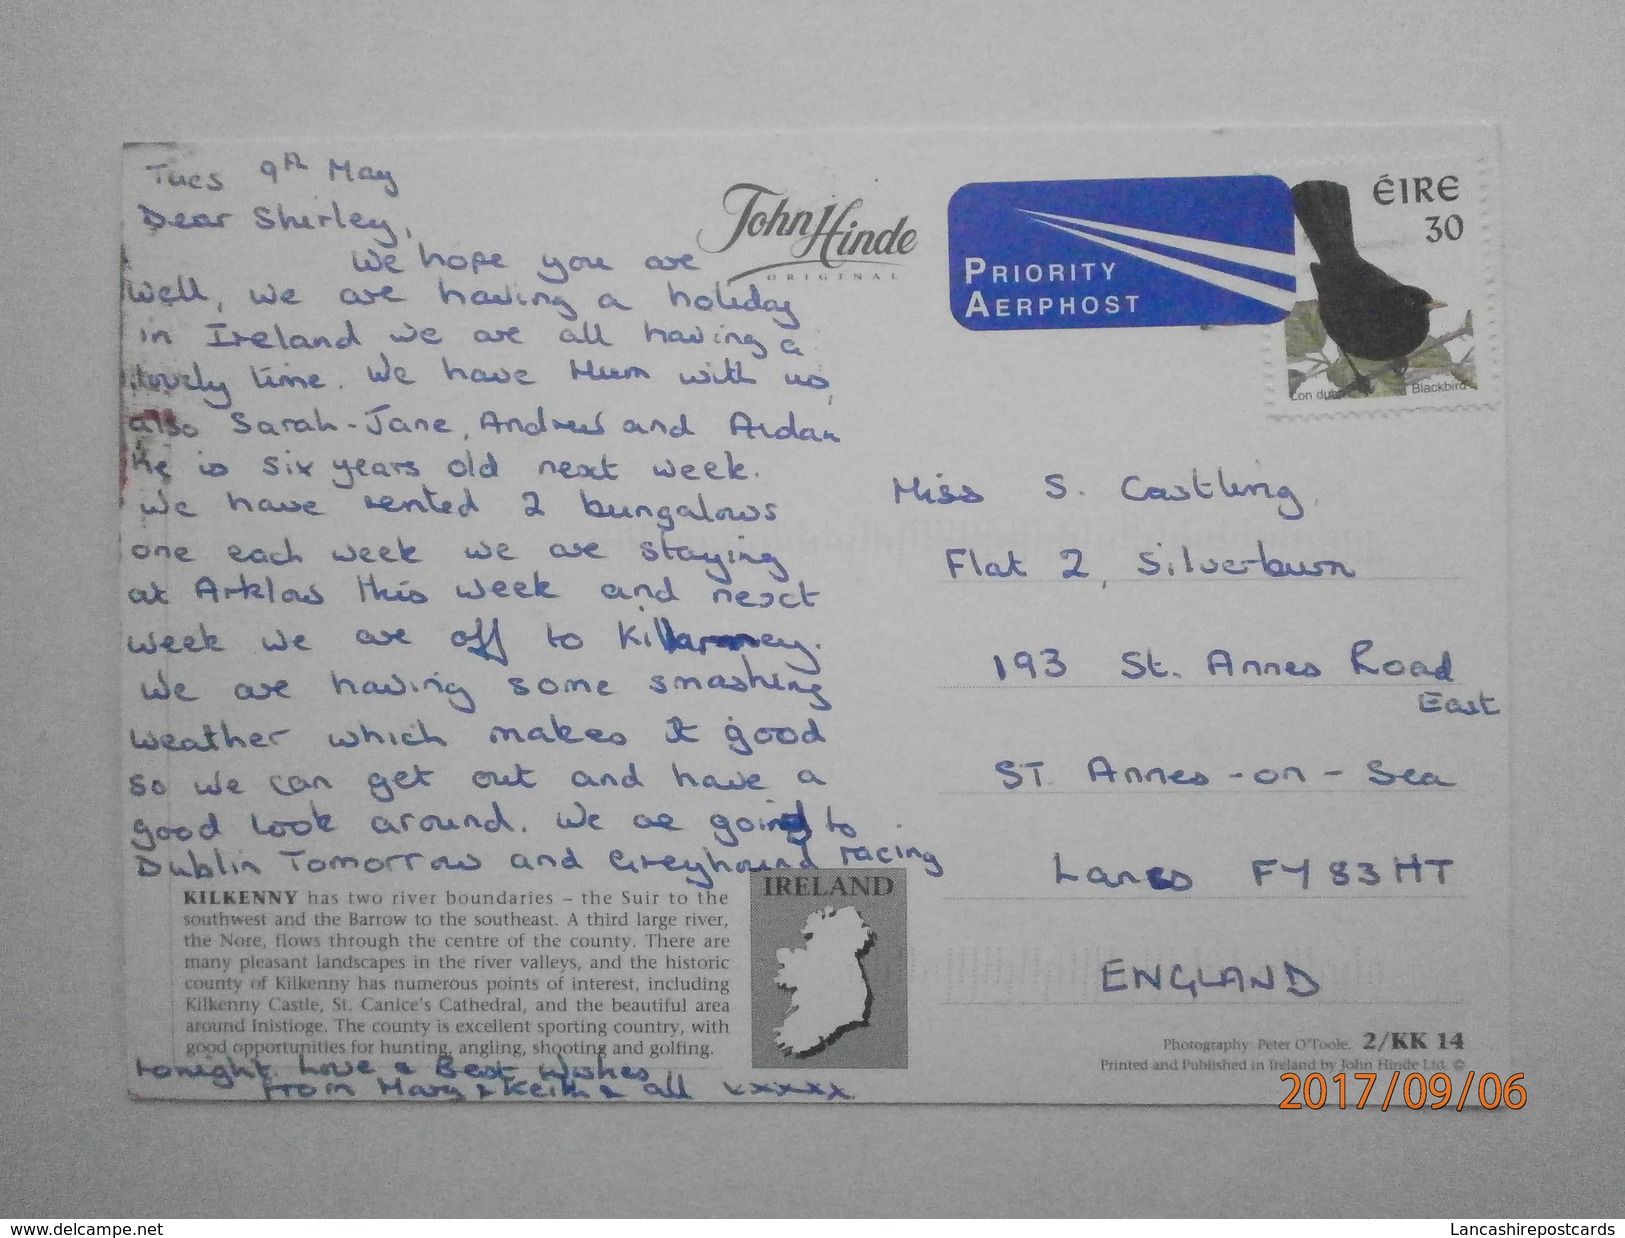 Tues 9th May
Dear Shirley,
We hope you are
well, we are having a holiday
in Ireland we are all having a
lovely time. We have Mum with us,
also Sarah-Jane, Andrew and Aidan
he is six years old next week.
We have rented 2 bungalows
one each week we are staying
at Arklow this week and next
week we are off to Killarney.
We are having some smashing
weather which makes it good
so we can get out and have a
good look around. We are going to
Dublin Tomorrow and Greyhound racing
tonight. Love & Best Wishes
from Mary & Keith & all xxxxx
John Hinde
ORIGINAL
PRIORITY
AERPHOST
ÉIRE
30
Lon dubh Blackbird
Miss S. Castling,
Flat 2, Silverburn
193 St. Annes Road
East
ST. Annes-on-Sea
Lancs FY8 3HT
ENGLAND
KILKENNY has two river boundaries – the Suir to the
southwest and the Barrow to the southeast. A third large river,
the Nore, flows through the centre of the county. There are
many pleasant landscapes in the river valleys, and the historic
county of Kilkenny has numerous points of interest, including
Kilkenny Castle, St. Canice's Cathedral, and the beautiful area
around Inistioge. The county is excellent sporting country, with
good opportunities for hunting, angling, shooting and golfing.
IRELAND
Photography: Peter O'Toole. 2/KK 14
Printed and Published in Ireland by John Hinde Ltd. ©
2017/09/06
www.delcampe.net
Lancashirepostcards